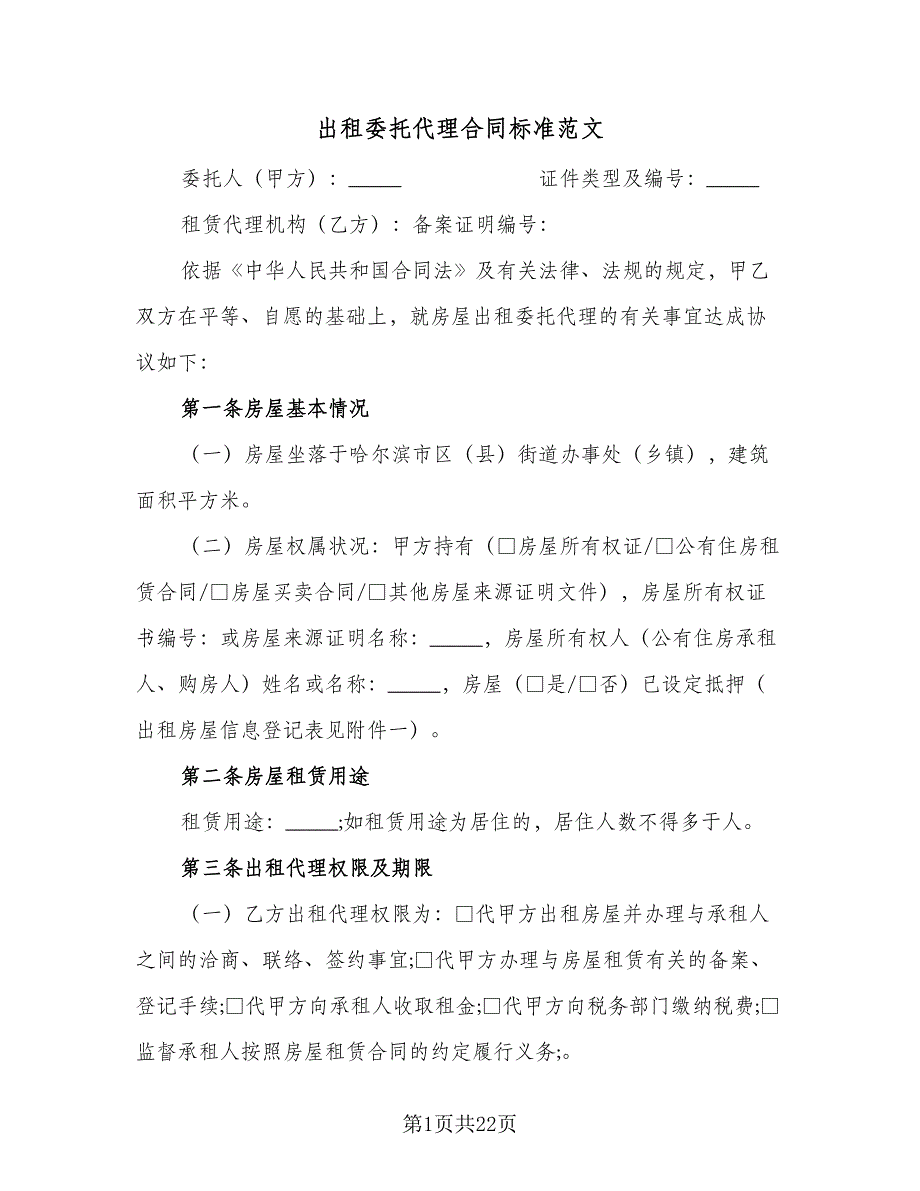 出租委托代理合同标准范文
委托人（甲方）：_____ 证件类型及编号：_____
租赁代理机构（乙方）：备案证明编号：
依据《中华人民共和国合同法》及有关法律、法规的规定，甲乙
双方在平等、自愿的基础上，就房屋出租委托代理的有关事宜达成协
议如下：
第一条房屋基本情况
（一）房屋坐落于哈尔滨市区（县）街道办事处（乡镇），建筑
面积平方米。
（二）房屋权属状况：甲方持有（□房屋所有权证/□公有住房租
赁合同/□房屋买卖合同/□其他房屋来源证明文件），房屋所有权证
书编号：或房屋来源证明名称：_____，房屋所有权人（公有住房承租
人、购房人）姓名或名称：_____，房屋（□是/□否）已设定抵押（
出租房屋信息登记表见附件一）。
第二条房屋租赁用途
租赁用途：_____;如租赁用途为居住的，居住人数不得多于人。
第三条出租代理权限及期限
（一）乙方出租代理权限为：□代甲方出租房屋并办理与承租人
之间的洽商、联络、签约事宜;□代甲方办理与房屋租赁有关的备案、
登记手续;□代甲方向承租人收取租金;□代甲方向税务部门缴纳税费;□
监督承租人按照房屋租赁合同的约定履行义务;。
第1页共22页